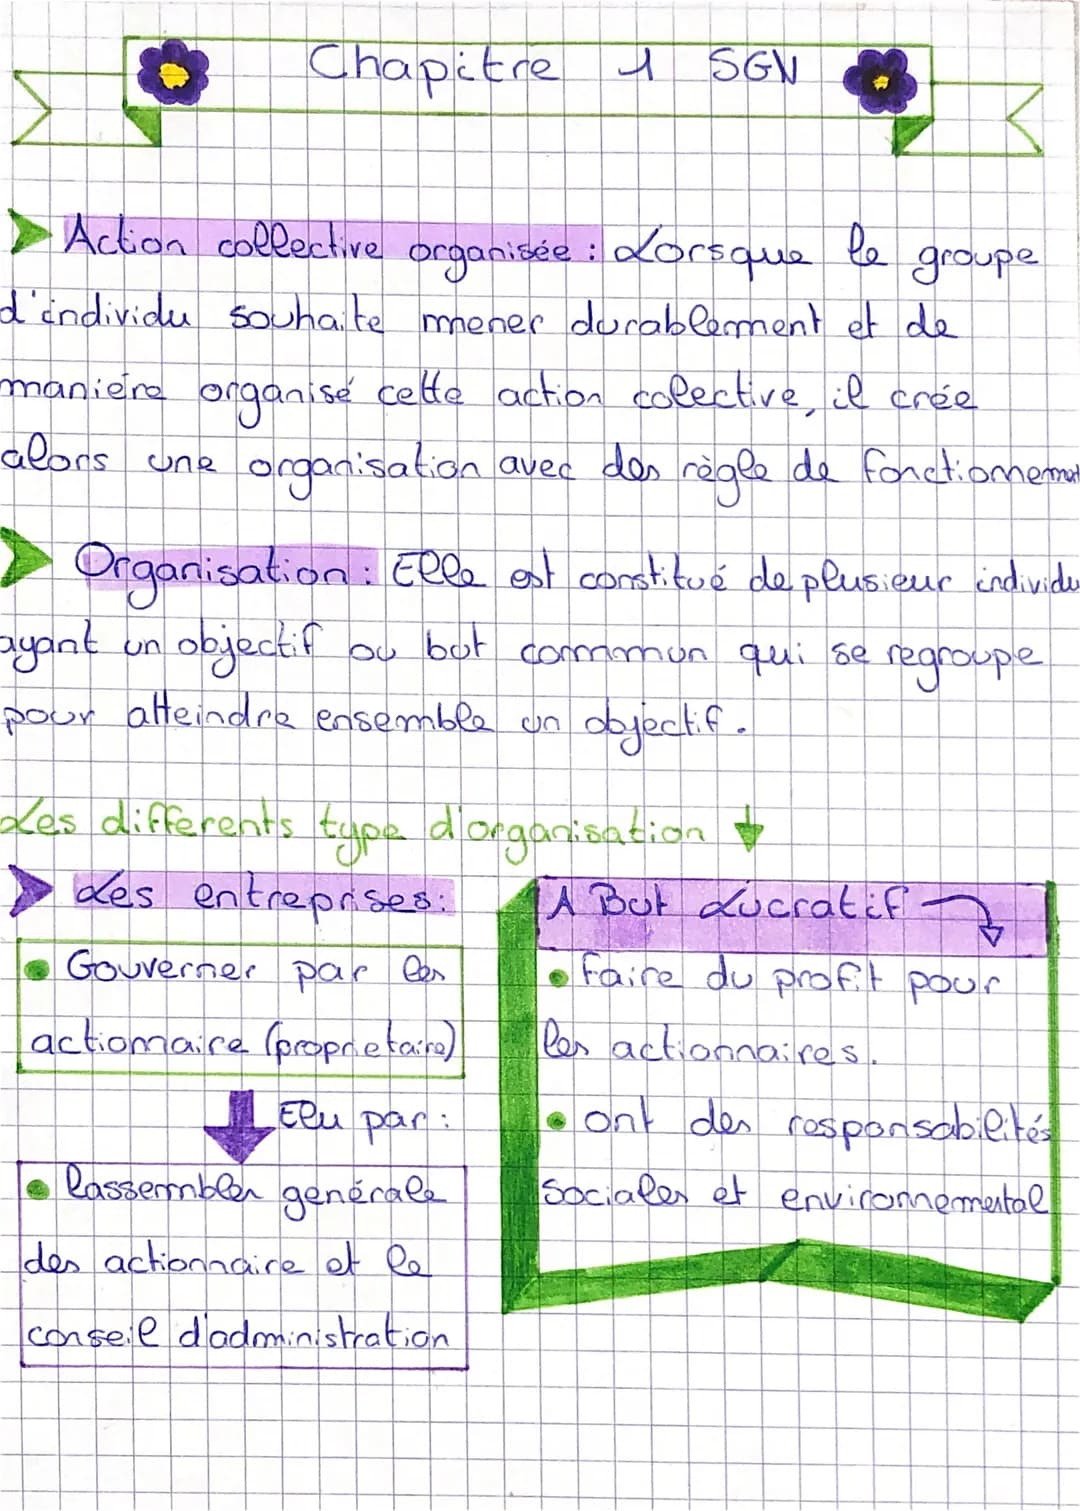 Chapitre 1 SGN
Action collective organisée : Lorsque le groupe
d'individu souhaite mener durablement et de
maniére organisé cette action colective, il crée
alors une organisation avec des règle de fonctionnement
Organisation : Elle est constitué de plusieur individu
ayant un objectif ou but commun qui se regroupe
pour atteindre ensemble un objectif.
Les differents type d'organisation
Les entreprises :
Gouverner par les
actionnaire (proprietaire)
Elu par :
l'assembler générale
des actionnaire et le
conseil d'administration
A But Lucratif
Faire du profit pour
les actionnaires.
ont des responsabilités
sociales et environnemental